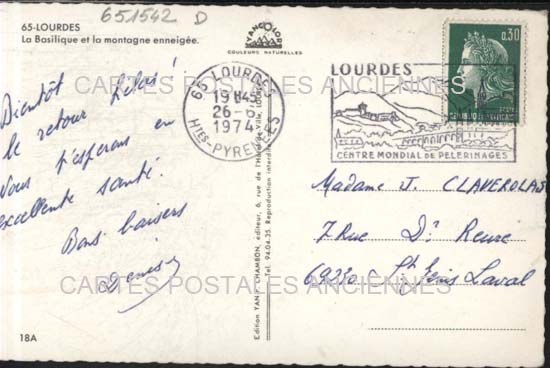 651542 D
65-LOURDES
La Basilique et la montagne enneigée.
YANCOLOR
COULEURS NATURELLES
Bientôt
le retour hélas!
Vous espérons en
excellente santé.
Bons baisers
Denise
18A
Edition YAN P. CHAMBON, éditeur, 6, rue de l'Hôtel-de-Ville, LOURDES
Tel. 94.04.35. Reproduction interdite
65 LOURDES
19 H45
26-6
1974
Htes-PYRENEES
LOURDES
CENTRE MONDIAL DE PÈLERINAGES
0,30
POSTES
REPUBLIQUE FRANÇAISE
Madame J. CLAVEROLAS
7 Rue Dr Reure
69230 St Genis Laval
CARTES POSTALES ANCIENNES
CARTES POSTALES ANCIENNES